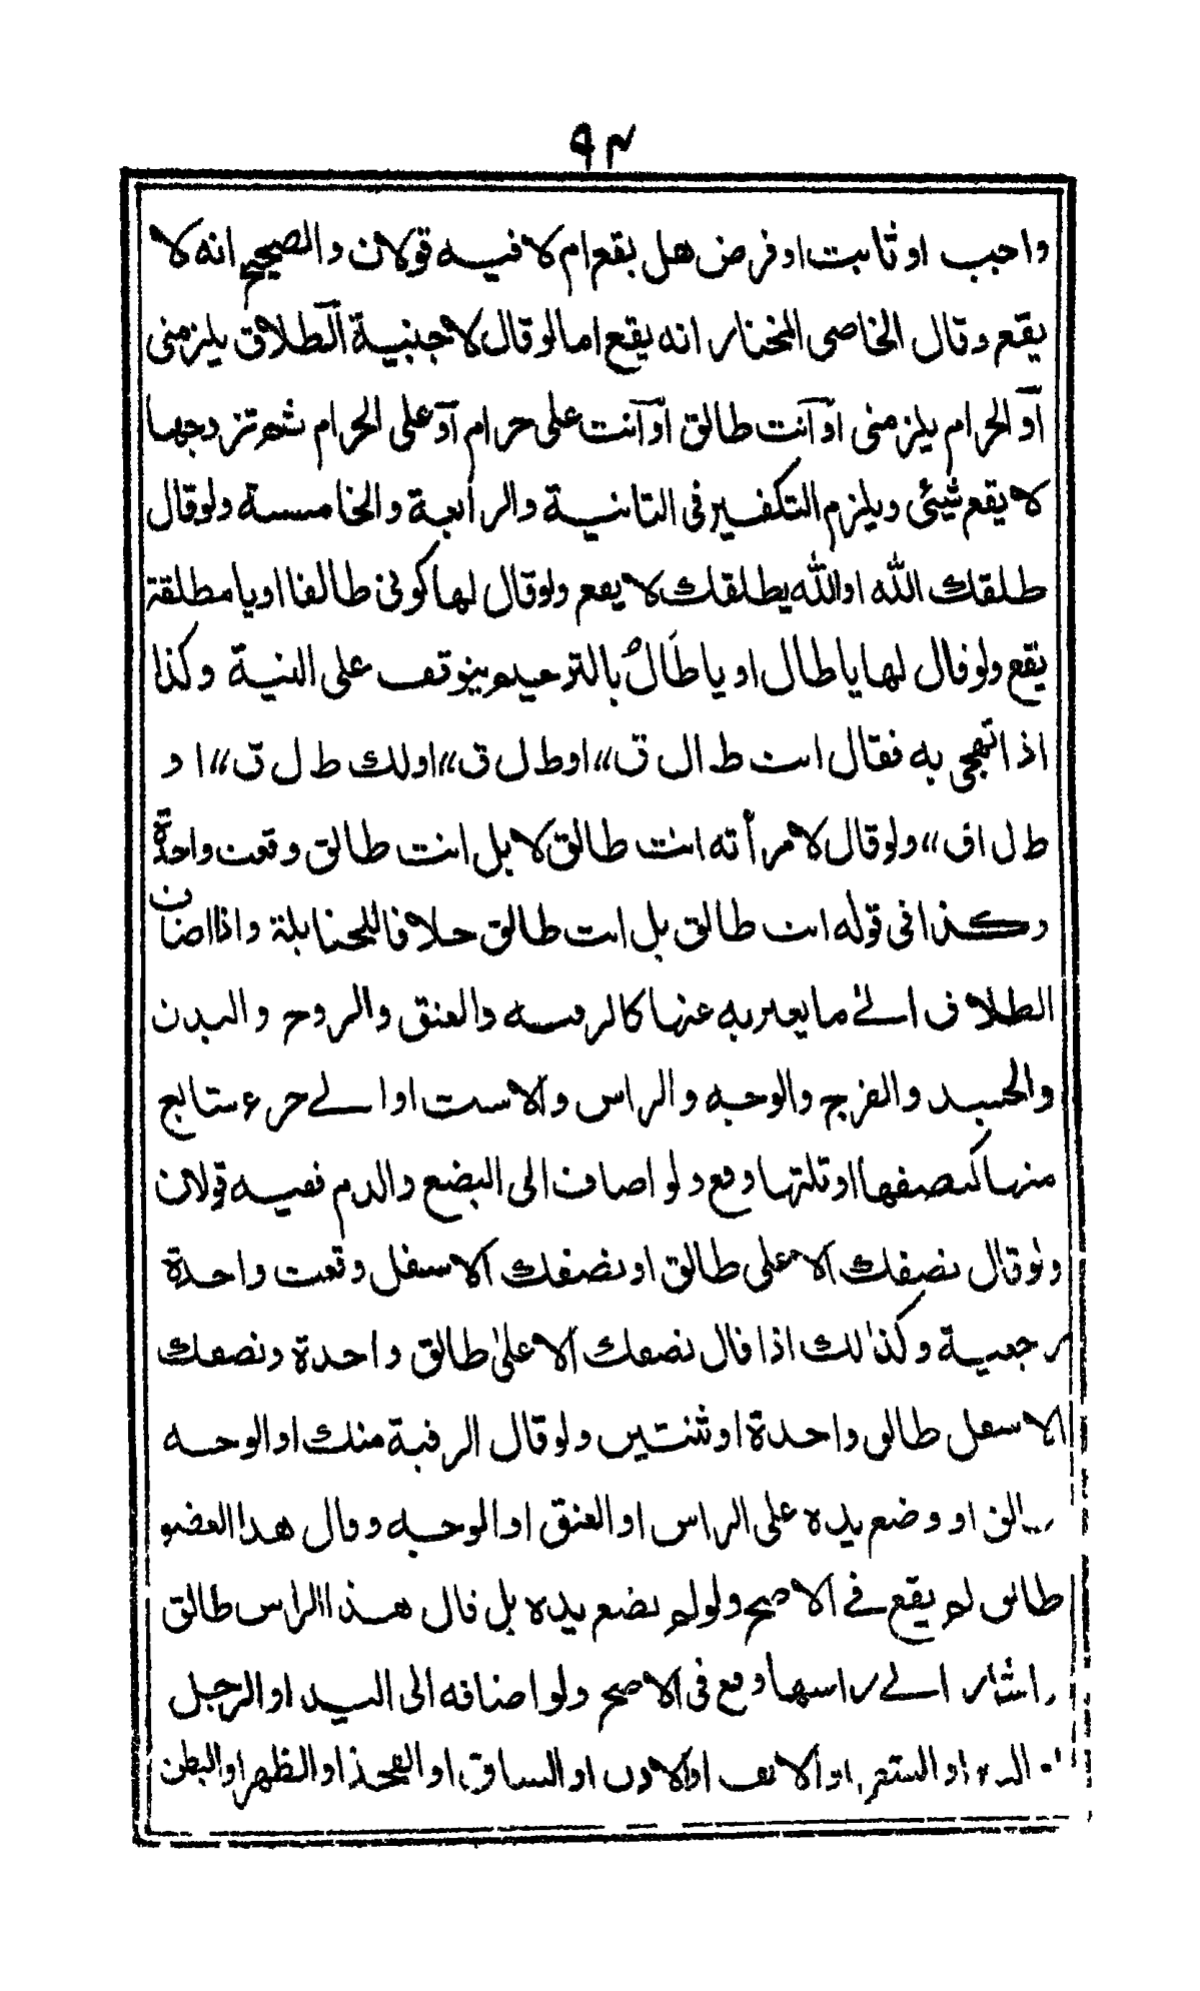 ٩٣
واجب او ثابت او فرض هل يقع ام لا فيه قولان والصحيح انه لا
يقع وقال الخاصى المختار انه يقع اما لو قال لاجنبية الطلاق يلزمنى
او الحرام يلزمنى او انت طالق او انت على حرام او على الحرام ثم تزوجها
لا يقع شيئى ويلزم التكفير فى الثانية والرابعة والخامسة ولو قال
طلقك الله او الله يطلقك لا يقع ولو قال لها كونى طالقا او يا مطلقة
يقع ولو قال لها يا طال او يا طالُ بالترخيم يتوقف على النية وكذا
اذا تهجى به فقال انت ط ال ق،، او ط ل ق،، او لك ط ل ق،، ا و
ط ل اق،، ولو قال لامرأته انت طالق لا بل انت طالق وقعت واحدة
وكذا فى قوله انت طالق بل انت طالق خلافا للحنابلة واذا اضاف
الطلاق الى ما يعبر به عنها كالرقبة والعنق والروح والبدن
والجسد والفرج والوجه والراس والاست او الے جزء شايع
منها كنصفها او ثلثها وقع ولو اضاف الى البضع والدم ففيه قولان
ولو قال نصفك الاعلى طالق او نصفك الاسفل وقعت واحدة
رجعية وكذلك اذا قال نصفك الاعلى طالق واحدة ونصفك
الاسفل طالق واحدة او ثنتين ولو قال الرقبة منك او الوجه
طالق او وضع يده على الراس او العنق او الوجه وقال هذا العضو
طالق لم يقع فے الاصح ولو لم يضع يده بل قال هذا الراس طالق
واشار الے راسها وقع فى الاصح ولو اضافه الى اليد او الرجل
او الشعر او الانف او الاذن او الساق او الفخذ او الظهر او البطن